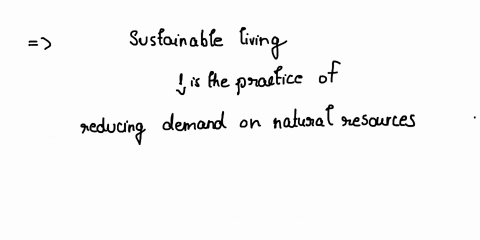 => Sustainable living
↓ is the practice of
reducing demand on natural resources